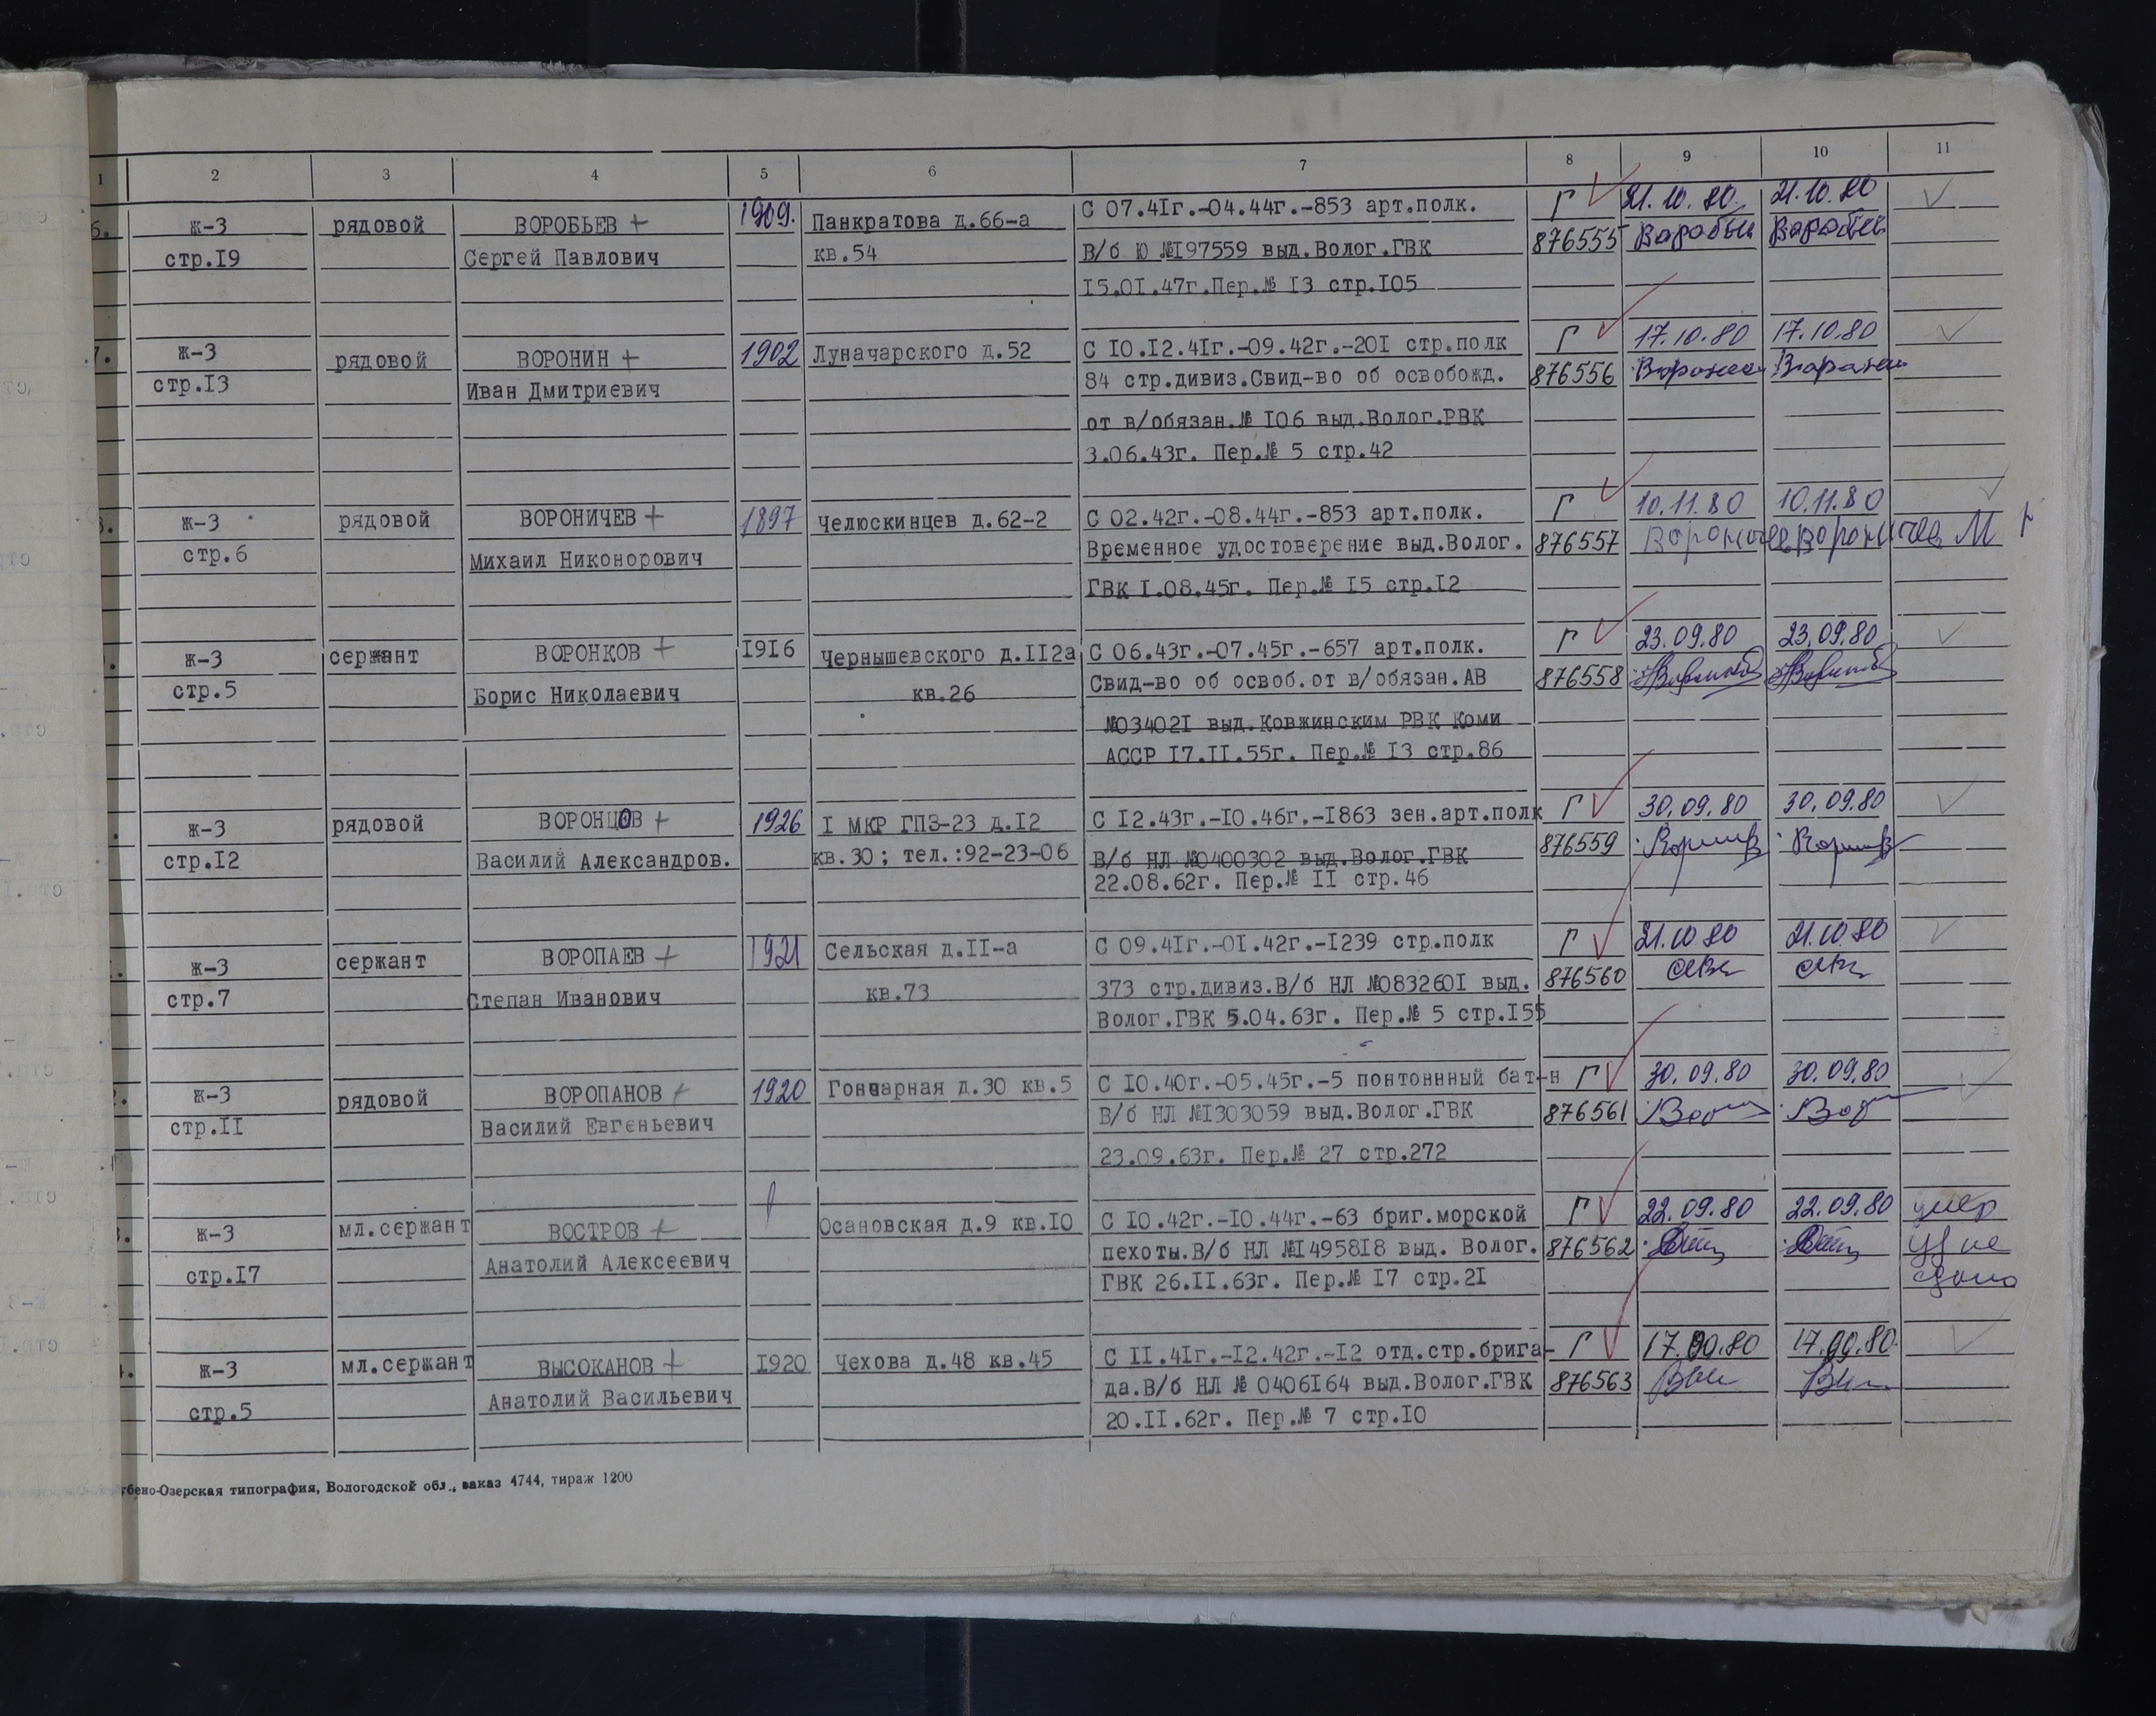 1 2 3 4 5 6 7 8 9 10 11
ж-3 рядовой ВОРОБЬЕВ + 1909. Панкратова д.66-а С 07.41г.-04.44г.-853 арт.полк. Г 21.10.80 21.10.80
стр.19 Сергей Павлович кв.54 В/б Ю №197559 выд.Волог.ГВК 876555
15.01.47г.Пер.№ 13 стр.105
7. ж-3 рядовой ВОРОНИН + 1902 Луначарского д.52 С 10.12.41г.-09.42г.-201 стр.полк Г 17.10.80 17.10.80
стр.13 Иван Дмитриевич 84 стр.дивиз.Свид-во об освобожд. 876556
от в/обязан.№ 106 выд.Волог.РВК
3.06.43г. Пер.№ 5 стр.42
ж-3 рядовой ВОРОНИЧЕВ + 1897 Челюскинцев д.62-2 С 02.42г.-08.44г.-853 арт.полк. Г 10.11.80 10.11.80
стр.6 Михаил Никонорович Временное удостоверение выд.Волог. 876557 Вороничев М
ГВК 1.08.45г. Пер.№ 15 стр.12
ж-3 сержант ВОРОНКОВ + 1916 Чернышевского д.112а С 06.43г.-07.45г.-657 арт.полк. Г 23.09.80 23.09.80
стр.5 Борис Николаевич кв.26 Свид-во об освоб.от в/обязан.АВ 876558
№034021 выд.Ковжинским РВК Коми
АССР 17.11.55г. Пер.№ 13 стр.86
ж-3 рядовой ВОРОНЦОВ + 1926 1 МКР ГПЗ-23 д.12 С 12.43г.-10.46г.-1863 зен.арт.полк Г 30.09.80 30.09.80
стр.12 Василий Александров. кв.30; тел.:92-23-06 В/б НЛ №0400302 выд.Волог.ГВК 876559
22.08.62г. Пер.№ 11 стр.46
ж-3 сержант ВОРОПАЕВ + 1921 Сельская д.11-а С 09.41г.-01.42г.-1239 стр.полк Г 21.10.80 21.10.80
стр.7 Степан Иванович кв.73 373 стр.дивиз.В/б НЛ №0832601 выд. 876560
Волог.ГВК 5.04.63г. Пер.№ 5 стр.155
ж-3 рядовой ВОРОПАНОВ + 1920 Гончарная д.30 кв.5 С 10.40г.-05.45г.-5 понтоннный бат-н Г 30.09.80 30.09.80
стр.11 Василий Евгеньевич В/б НЛ №1303059 выд.Волог.ГВК 876561
23.09.63г. Пер.№ 27 стр.272
ж-3 мл.сержант ВОСТРОВ + Осановская д.9 кв.10 С 10.42г.-10.44г.-63 бриг.морской Г 22.09.80 22.09.80 умер
стр.17 Анатолий Алексеевич пехоты.В/б НЛ №1495818 выд. Волог. 876562 не
ГВК 26.11.63г. Пер.№ 17 стр.21
ж-3 мл.сержант ВЫСОКАНОВ + 1920 Чехова д.48 кв.45 С 11.41г.-12.42г.-12 отд.стр.брига- Г 17.09.80 17.09.80.
стр.5 Анатолий Васильевич да.В/б НЛ № 0406164 выд.Волог.ГВК 876563
20.11.62г. Пер.№ 7 стр.10
бено-Озерская типография, Вологодской обл., заказ 4744, тираж 1200